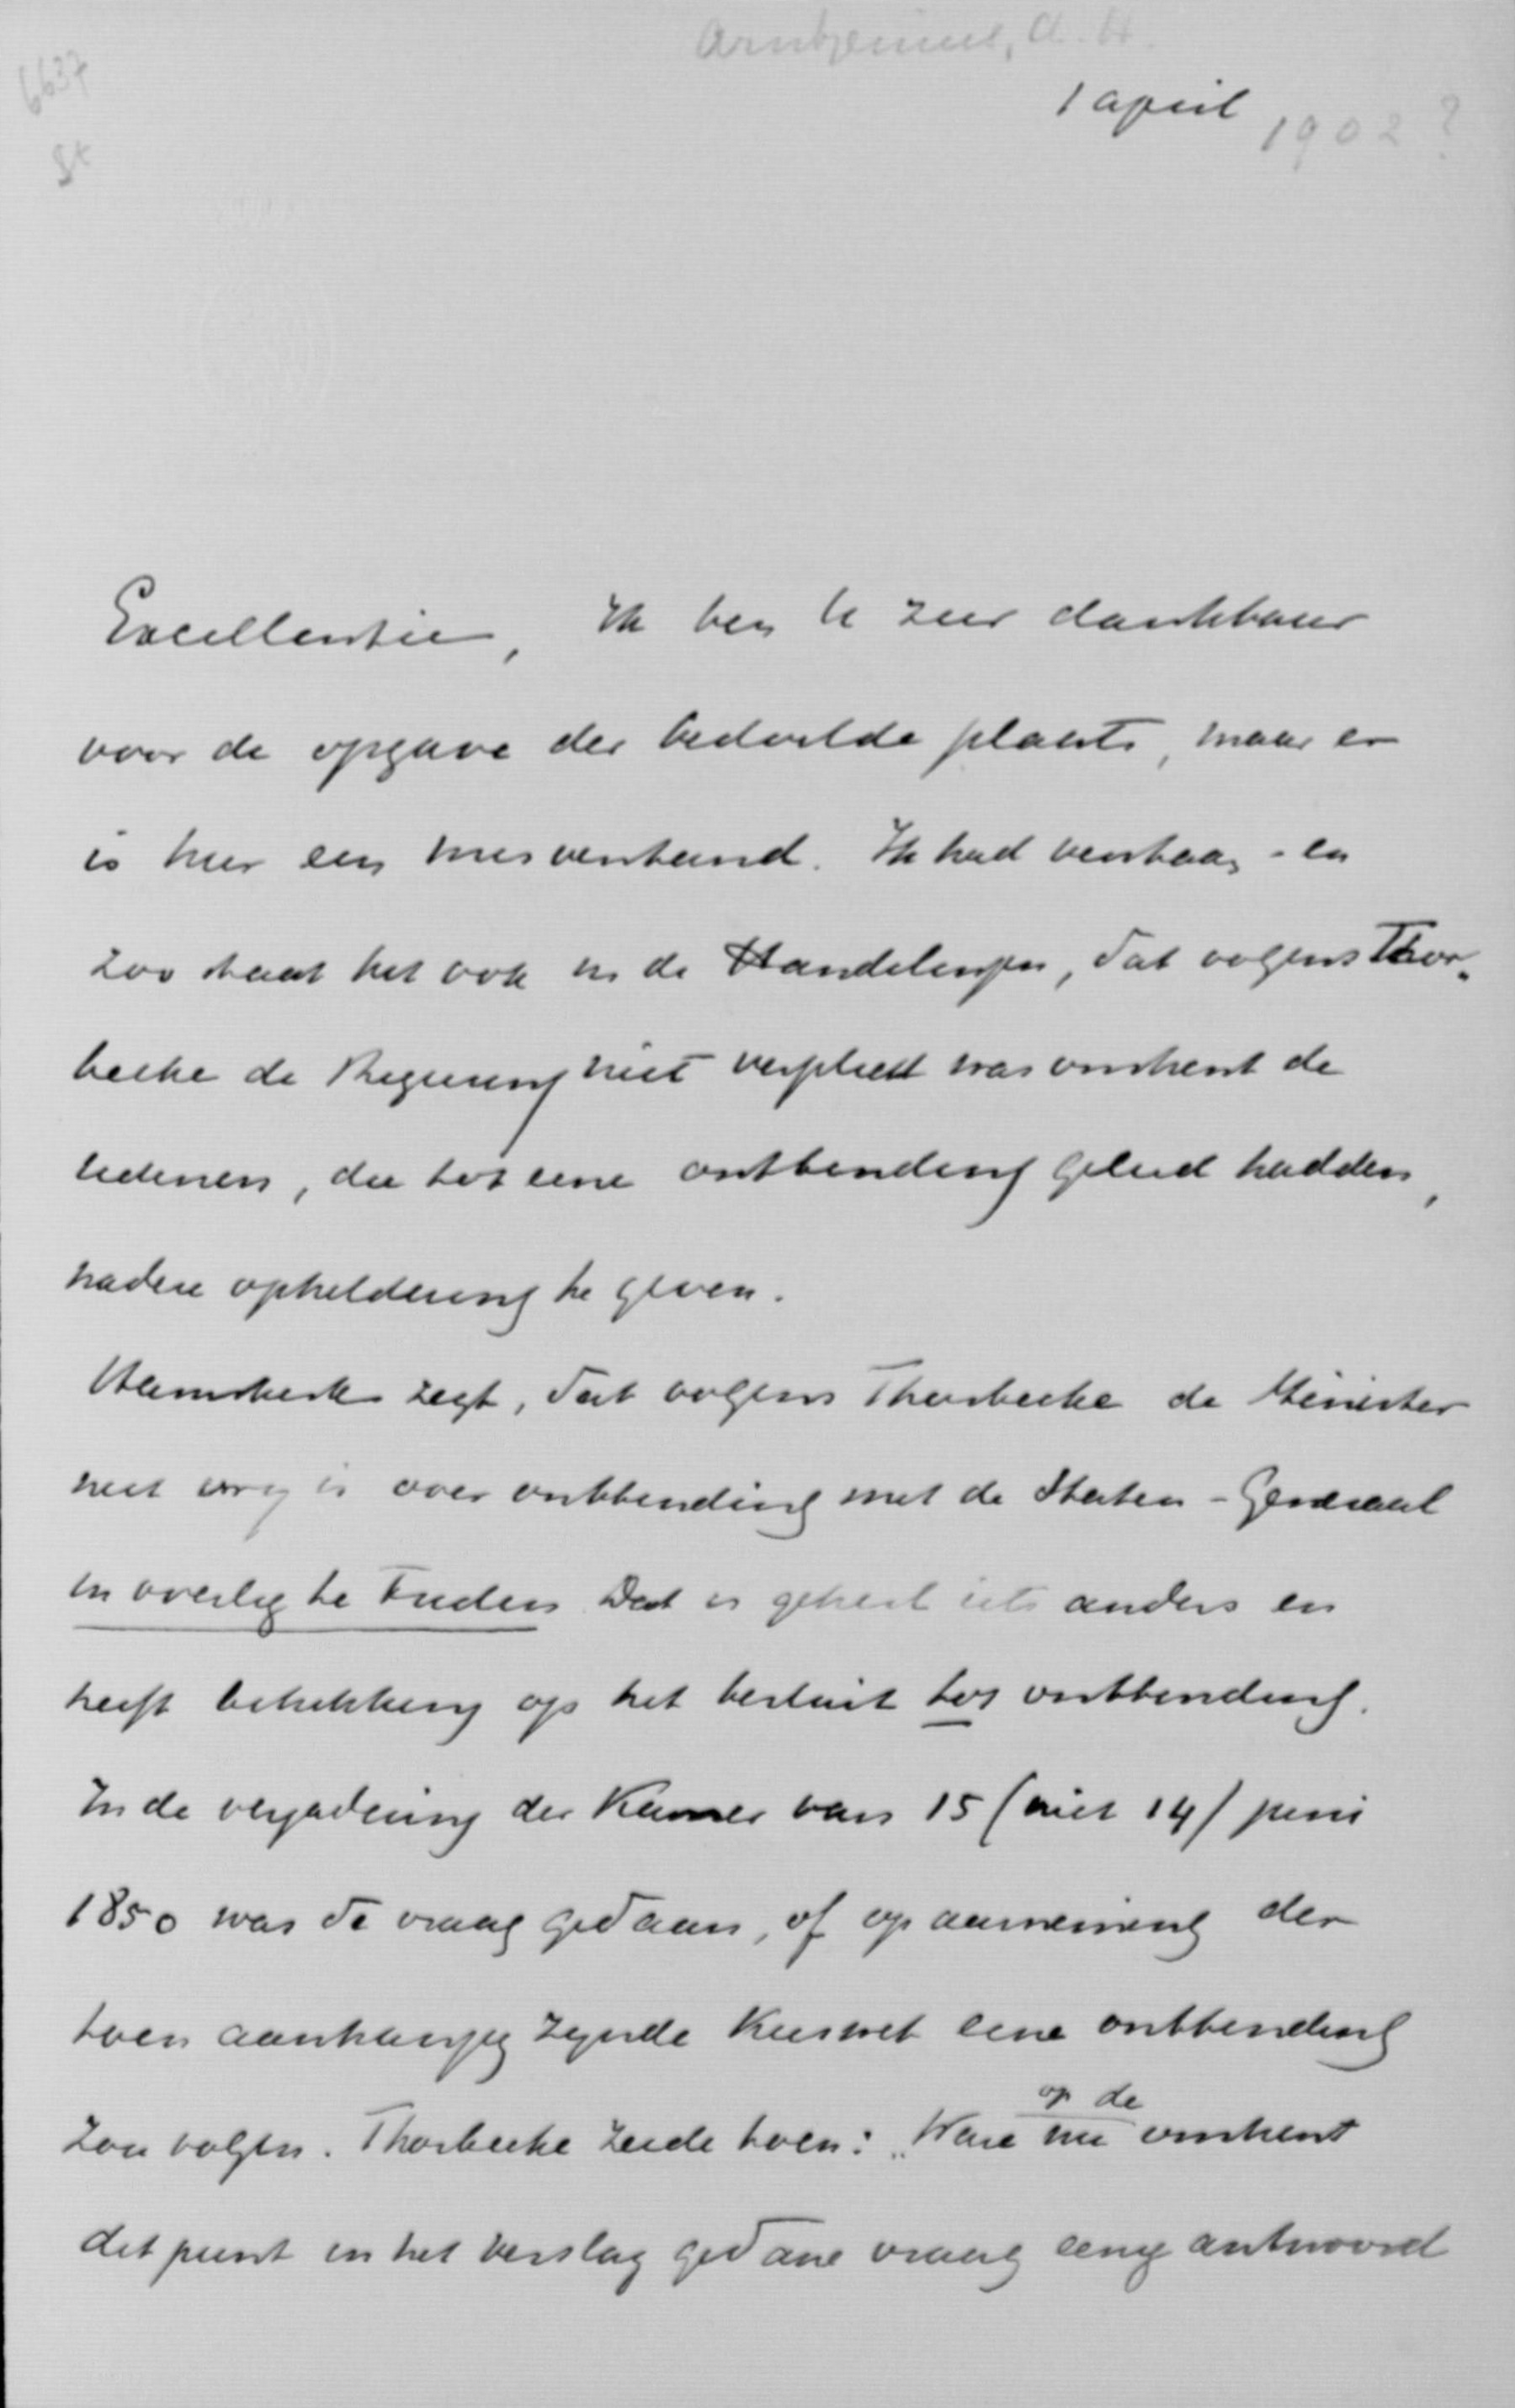 Arntzenius, A. H.
6637
St
1 april 1902?
Excellentie, Ik ben U zeer dankbaar
voor de opgave der bedoelde plaats, maar er
is hier een misverstand. Ik had verstaan - en
zoo staat het ook in de Handelingen, dat volgens Thor„
becke de Regeering niet verplicht was omtrent de
redenen, die tot eene ontbinding geleid hadden,
nadere opheldering te geven.
Heemskerk zegt, dat volgens Thorbecke de Minister
niet vrij is over ontbinding met de Staten-Generaal
in overleg te treden. Dat is geheel iets anders en
heeft betrekking op het besluit tot ontbinding.
In de vergadering der Kamer van 15 (niet 14) juni
1850 was de vraag gedaan, of op aanneming der
toen aanhangig zijnde Kieswet eene ontbinding
zou volgen. Thorbecke zeide toen: „Ware nu op de omtrent
dit punt in het verslag gedane vraag eenig antwoord